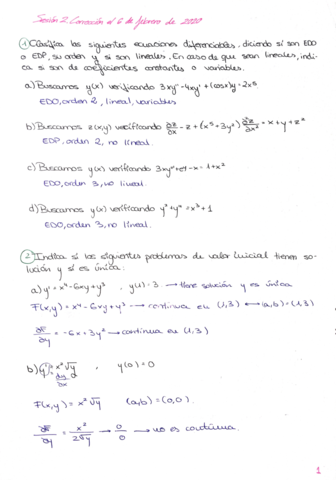 Sesión 2. Corrección al 6 de febrero de 2020
① Clasifica las siguientes ecuaciones diferenciables, diciendo si son EDO
o EDP, su orden y si son lineales. En caso de que sean lineales, indi-
ca si son de coeficientes constantes o variables.
a) Buscamos y(x) verificando 3xy''-4xy'+(cosx)y=2x⁵
EDO, orden 2, lineal, variables
b) Buscamos z(x,y) verificando ∂z/∂x - z + (x⁵+3y²) ∂²z/∂x² = x+y+z²
EDP, orden 2, no lineal.
c) Buscamos y(x) verificando
EDO, orden 3, no lineal.
d) Buscamos y(x) verificando
EDO, orden 3, no lineal
② Indica si los siguientes problemas de valor inicial tienen so-
lución y si es única.
a) y' = x⁴-6xy+y³ , y(1)=3 → tiene solución y es única
F(x,y) = x⁴-6xy+y³ → continua en (1,3) ↔ (a,b)=(1,3)
∂F/∂y = -6x+3y² → continua en (1,3)
b) y' = x²√y , y(0)=0
dy/dx
F(x,y) = x²√y (a,b)=(0,0).
∂F/∂y = x²/2√y → 0/0 → no es continua.
1